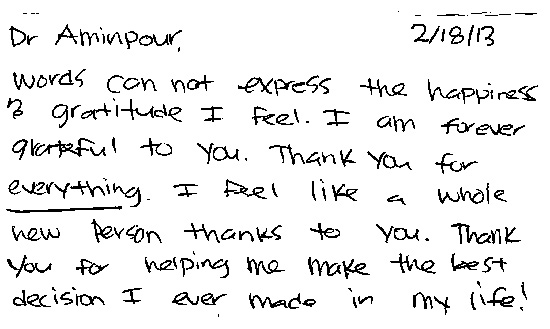 Dr Aminpour, 2/18/13
Words can not express the happiness
& gratitude I feel. I am forever
grateful to you. Thank you for
everything. I feel like a whole
new person thanks to you. Thank
you for helping me make the best
decision I ever made in my life!